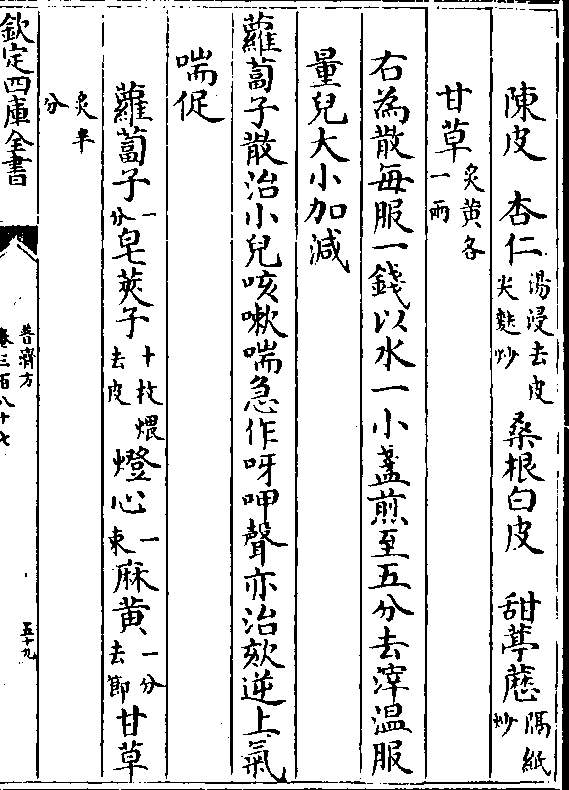 陳皮　杏仁湯浸去皮尖麩炒　桑根白皮　甜葶藶隔紙炒
甘草炙黄各一兩
右為散每服一錢以水一小盞煎至五分去滓温服
量兒大小加減
蘿蔔子散治小兒咳嗽喘急作呀呷聲亦治欬逆上氣
喘促
蘿蔔子一分皂莢子十枚煨去皮燈心一束麻黄一分去節甘草
炙半分
欽定四庫全書
普濟方
卷三百八十七
五十九